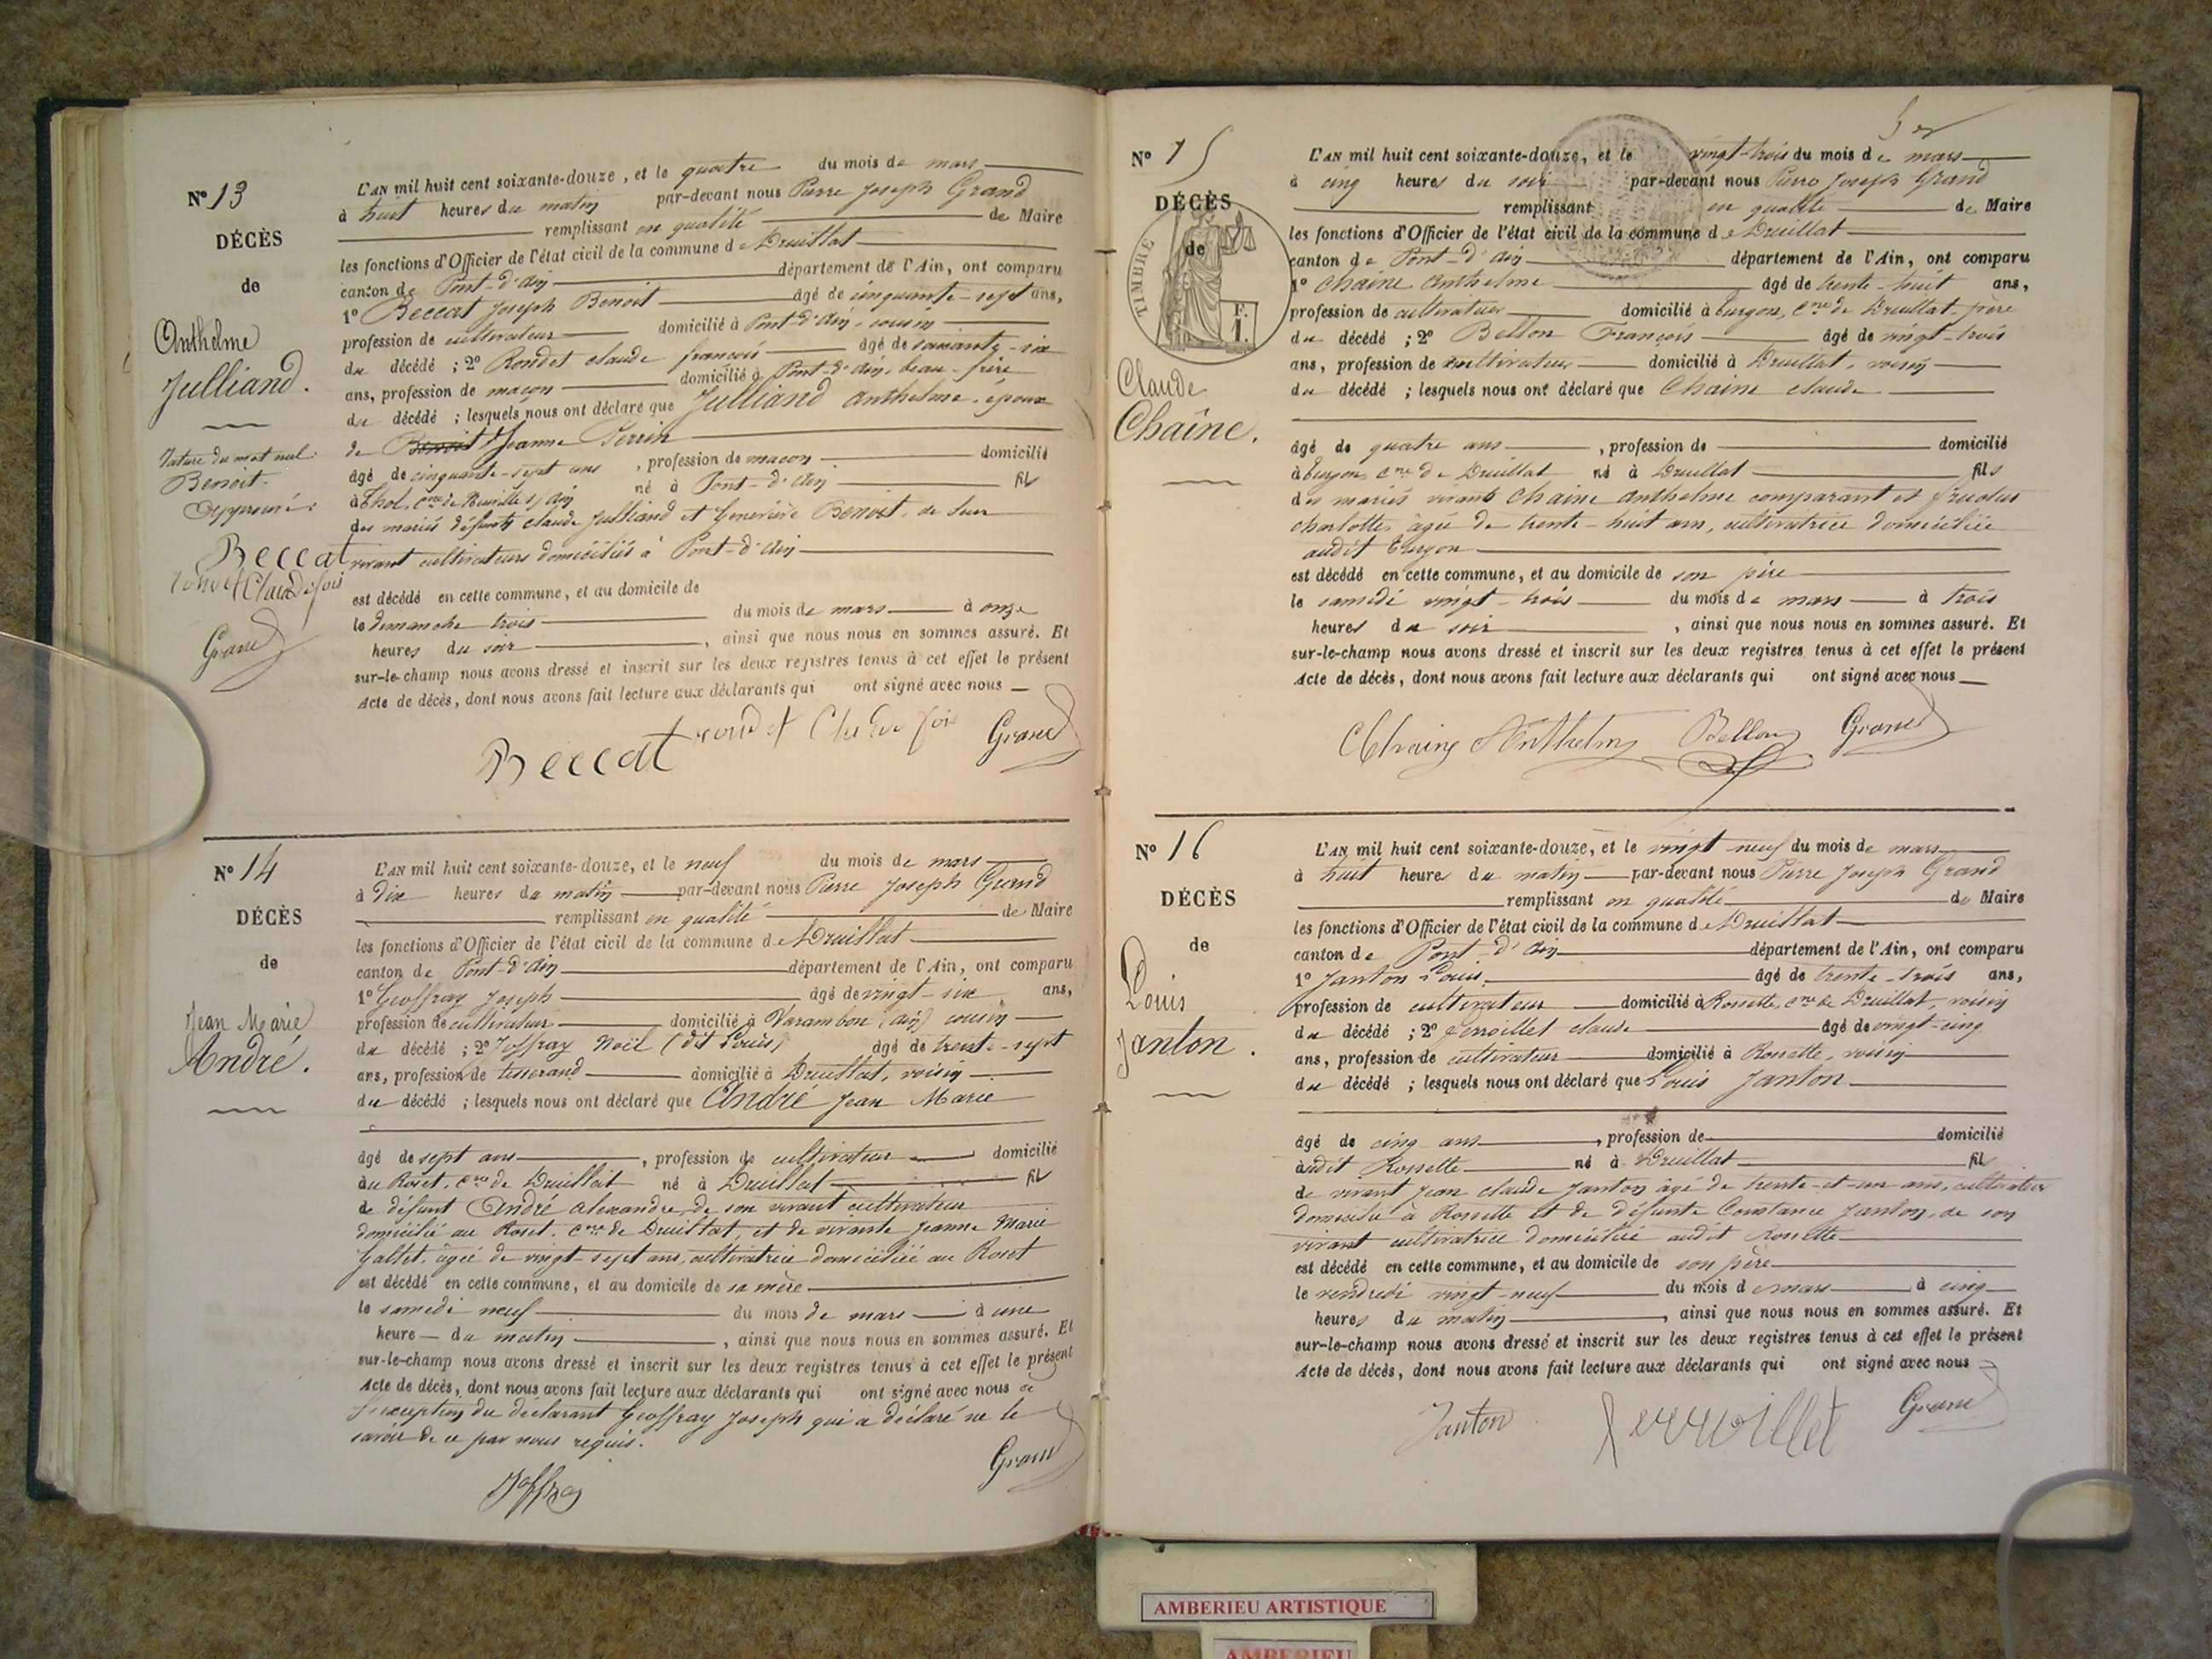 Nº 13
DÉCÈS
de
Anthelme
Julliand.
Rature du mot nul
Benoit.
Approuvé :
Beccat
Grand
L'AN mil huit cent soixante-douze, et le quatre du mois de mars
à huit heures du matin par-devant nous Pierre Joseph Grand
remplissant en qualité de Maire
les fonctions d'Officier de l'état civil de la commune de Druillat
canton de Pont-d'Ain département de l'Ain, ont comparu
1º Beccat Joseph Benoit âgé de cinquante-sept ans,
profession de cultivateur domicilié à Pont-d'Ain, cousin
du décédé ; 2º Rondet Claude françois âgé de soixante-six
ans, profession de maçon domicilié à Pont-d'Ain, beau-frère
du décédé ; lesquels nous ont déclaré que Julliand Anthelme, époux
de Benoit Jeanne Perrin
âgé de cinquante-sept ans, profession de maçon domicilié
à Thol, cne de Neuville s/ Ain né à Pont-d'Ain fils
des mariés défunts Claude Julliand et Genevière Benoit, de leur
vivant cultivateurs domiciliés à Pont-d'Ain
est décédé en cette commune, et au domicile de
le dimanche trois du mois de mars à onze
heures du soir, ainsi que nous nous en sommes assuré. Et
sur-le-champ nous avons dressé et inscrit sur les deux registres tenus à cet effet le présent
Acte de décès, dont nous avons fait lecture aux déclarants qui ont signé avec nous
Beccat Grand
Nº 14
DÉCÈS
de
Jean Marie
André.
L'AN mil huit cent soixante-douze, et le neuf du mois de mars
à dix heures du matin par-devant nous Pierre Joseph Grand
remplissant en qualité de Maire
les fonctions d'Officier de l'état civil de la commune de Druillat
canton de Pont-d'Ain département de l'Ain, ont comparu
1º Geoffray Joseph âgé de vingt-six ans,
profession de cultivateur domicilié à Varambon (Ain) cousin
du décédé ; 2º Joffray Noël (dit Louis) âgé de trente-sept
ans, profession de tisserand domicilié à Druillat, voisin
du décédé ; lesquels nous ont déclaré que André Jean Marie
âgé de sept ans, profession de cultivateur domicilié
au Roset, cne de Druillat né à Druillat fils
de défunt André Alexandre, de son vivant cultivateur
domicilié au Roset, cne de Druillat, et de vivante Jeanne Marie
Gallet, âgée de vingt-sept ans, cultivatrice domiciliée au Roset
est décédé en cette commune, et au domicile de sa mère
le samedi neuf du mois de mars à une
heure du matin, ainsi que nous nous en sommes assuré. Et
sur-le-champ nous avons dressé et inscrit sur les deux registres tenus à cet effet le présent
Acte de décès, dont nous avons fait lecture aux déclarants qui ont signé avec nous à
l'exception du déclarant Geoffray Joseph qui a déclaré ne le
savoir de ce par nous requis.
Joffray Grand
Nº 15
DÉCÈS
de
TIMBRE
F.
1.
Claude
Chaîne.
L'AN mil huit cent soixante-douze, et le vingt-trois du mois de mars
à cinq heures du soir par-devant nous Pierre Joseph Grand
remplissant en qualité de Maire
les fonctions d'Officier de l'état civil de la commune de Druillat
canton de Pont-d'Ain département de l'Ain, ont comparu
1º Chaine Anthelme âgé de trente-huit ans,
profession de cultivateur domicilié à Turgon, cne de Druillat, père
du décédé ; 2º Bellon François âgé de vingt-trois
ans, profession de cultivateur domicilié à Druillat, voisin
du décédé ; lesquels nous ont déclaré que Chaine Claude
âgé de quatre ans, profession de domicilié
à Turgon, cne de Druillat né à Druillat fils
des mariés vivants Chaine Anthelme comparant et
Charlotte, âgée de trente-huit ans, cultivatrice domiciliée
audit Turgon
est décédé en cette commune, et au domicile de son père
le samedi vingt-trois du mois de mars à trois
heures du soir, ainsi que nous nous en sommes assuré. Et
sur-le-champ nous avons dressé et inscrit sur les deux registres tenus à cet effet le présent
Acte de décès, dont nous avons fait lecture aux déclarants qui ont signé avec nous
Chaine Anthelme Bellon Grand
Nº 16
DÉCÈS
de
Louis
Janton.
L'AN mil huit cent soixante-douze, et le vingt-neuf du mois de mars
à huit heures du matin par-devant nous Pierre Joseph Grand
remplissant en qualité de Maire
les fonctions d'Officier de l'état civil de la commune de Druillat
canton de Pont-d'Ain département de l'Ain, ont comparu
1º Janton Louis âgé de trente-trois ans,
profession de cultivateur domicilié à Rossette, cne de Druillat, voisin
du décédé ; 2º Perroillet Claude âgé de vingt-cinq
ans, profession de cultivateur domicilié à Rossette, voisin
du décédé ; lesquels nous ont déclaré que Louis Janton
âgé de cinq ans, profession de domicilié
audit Rossette né à Druillat fils
de vivant Jean Claude Janton âgé de trente-et-un ans, cultivateur
domicilié à Rossette et de défunte Constance Janton, de son
vivant cultivatrice domiciliée audit Rossette
est décédé en cette commune, et au domicile de son père
le vendredi vingt-neuf du mois de mars à cinq
heures du matin, ainsi que nous nous en sommes assuré. Et
sur-le-champ nous avons dressé et inscrit sur les deux registres tenus à cet effet le présent
Acte de décès, dont nous avons fait lecture aux déclarants qui ont signé avec nous
Janton Perroillet Grand
AMBERIEU ARTISTIQUE
AMBERIEU